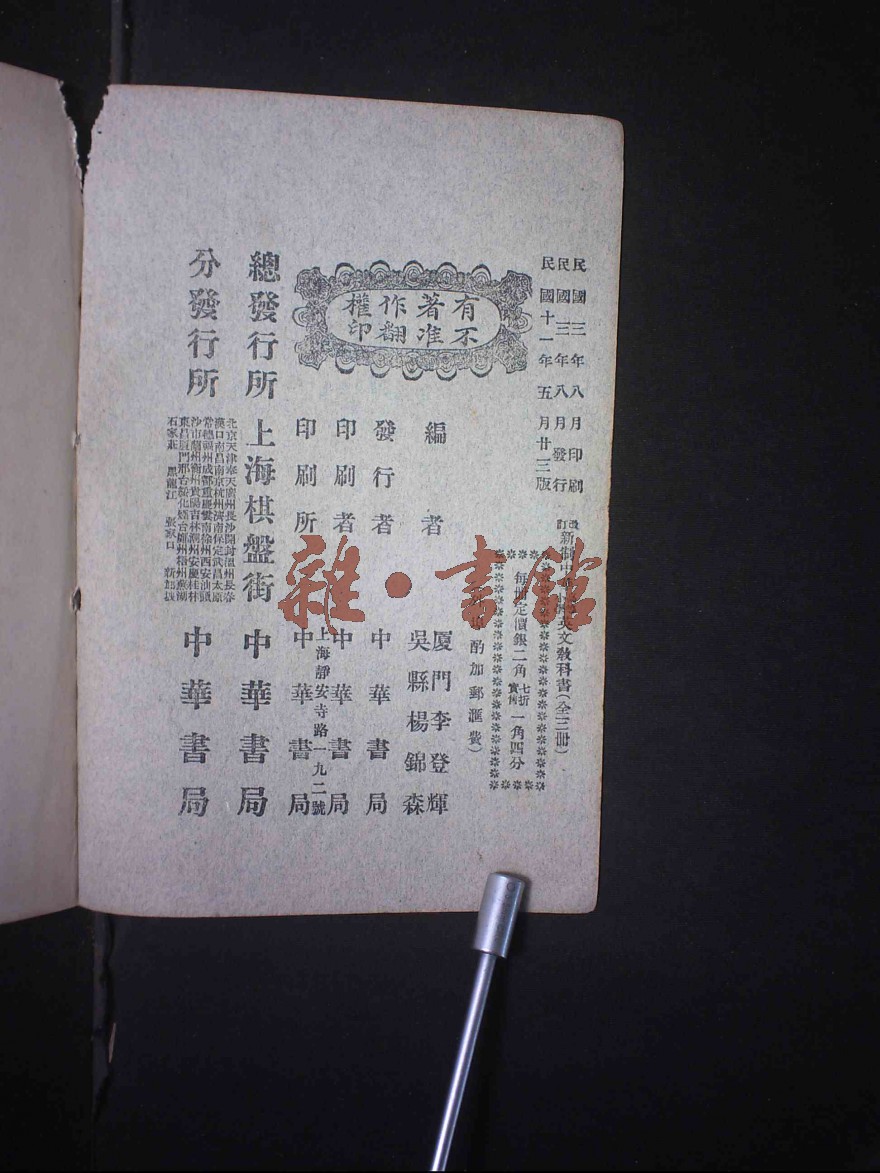 民國三年八月印刷
民國三年八月發行
民國十一年五月廿三版
改訂新制中華英文教科書(全三冊)
每冊定價銀二角七折實售一角四分
酌加郵滙費)
有著作權
不准翻印
編者
廈門李登輝
吳縣楊錦森
發行者 中華書局
印刷者 中華書局
印刷所 上海靜安寺路一九二號 中華書局
總發行所 上海棋盤街 中華書局
分發行所 中華書局
北京天津奉天廣州長沙開封溫州長春
漢口南昌南京杭州濟南保定武昌太原
常德福州成都重慶雲南徐州西安汕頭
石家莊 黑龍江 張家口 新加坡
雜·書館